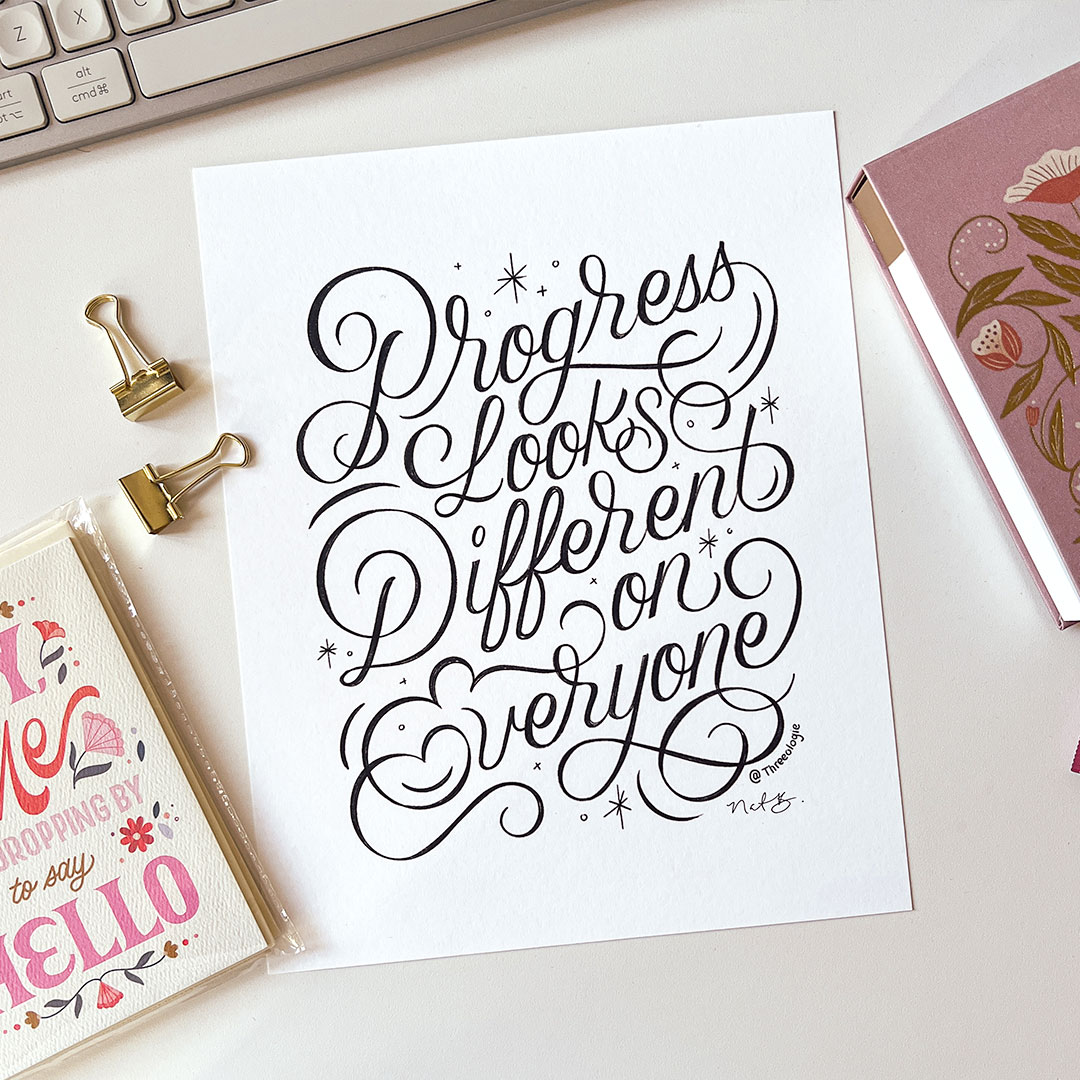 Z X C
alt
cmd ⌘
Progress
Looks
Different
on
Everyone
@Threeologie
me
DROPPING BY
to say
HELLO